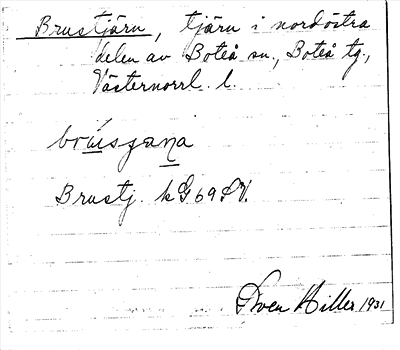 Brustjärn, tjärn i nordöstra
delen av Boteå sn., Boteå tg.,
Västernorrl. l.
Brustj. kG69SV.
Sven Hiller 1931